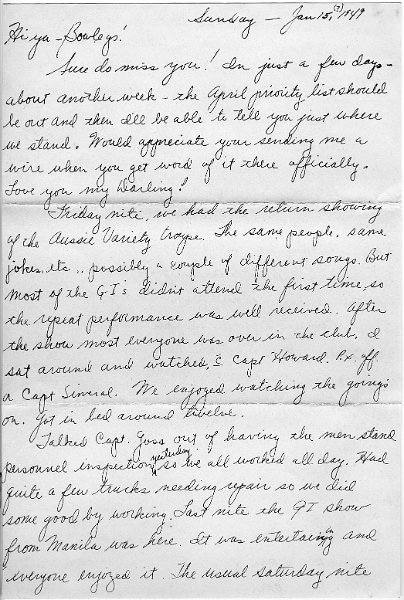 Sunday — Jan 15, (?) 1949
Hi ya - Bowlegs!
Sure do miss you! In just a few days -
about another week - the April priority list should
be out and then I'll be able to tell you just where
we stand. Would appreciate your sending me a
wire when you get word of it there officially.
Love you my Darling!
Friday nite, we had the return showing
of the Aussie Variety troupe. The same people, same
jokes, etc., possibly a couple of different songs. But
most of the GI's didn't attend the first time, so
the repeat performance was well received. After
the show most everyone was over in the club, I
sat around and watched, c̄ Capt Howard. P.X. off
a Capt Simeral. We enjoyed watching the goings
on. Got in bed around twelve.
Talked Capt. Goss out of having the men stand
personnel inspection yesterday so we all worked all day. Had
quite a few trucks needing repair so we did
some good by working. Last nite the GI show
from Manila was here. It was entertaining and
everyone enjoyed it. The usual Saturday nite